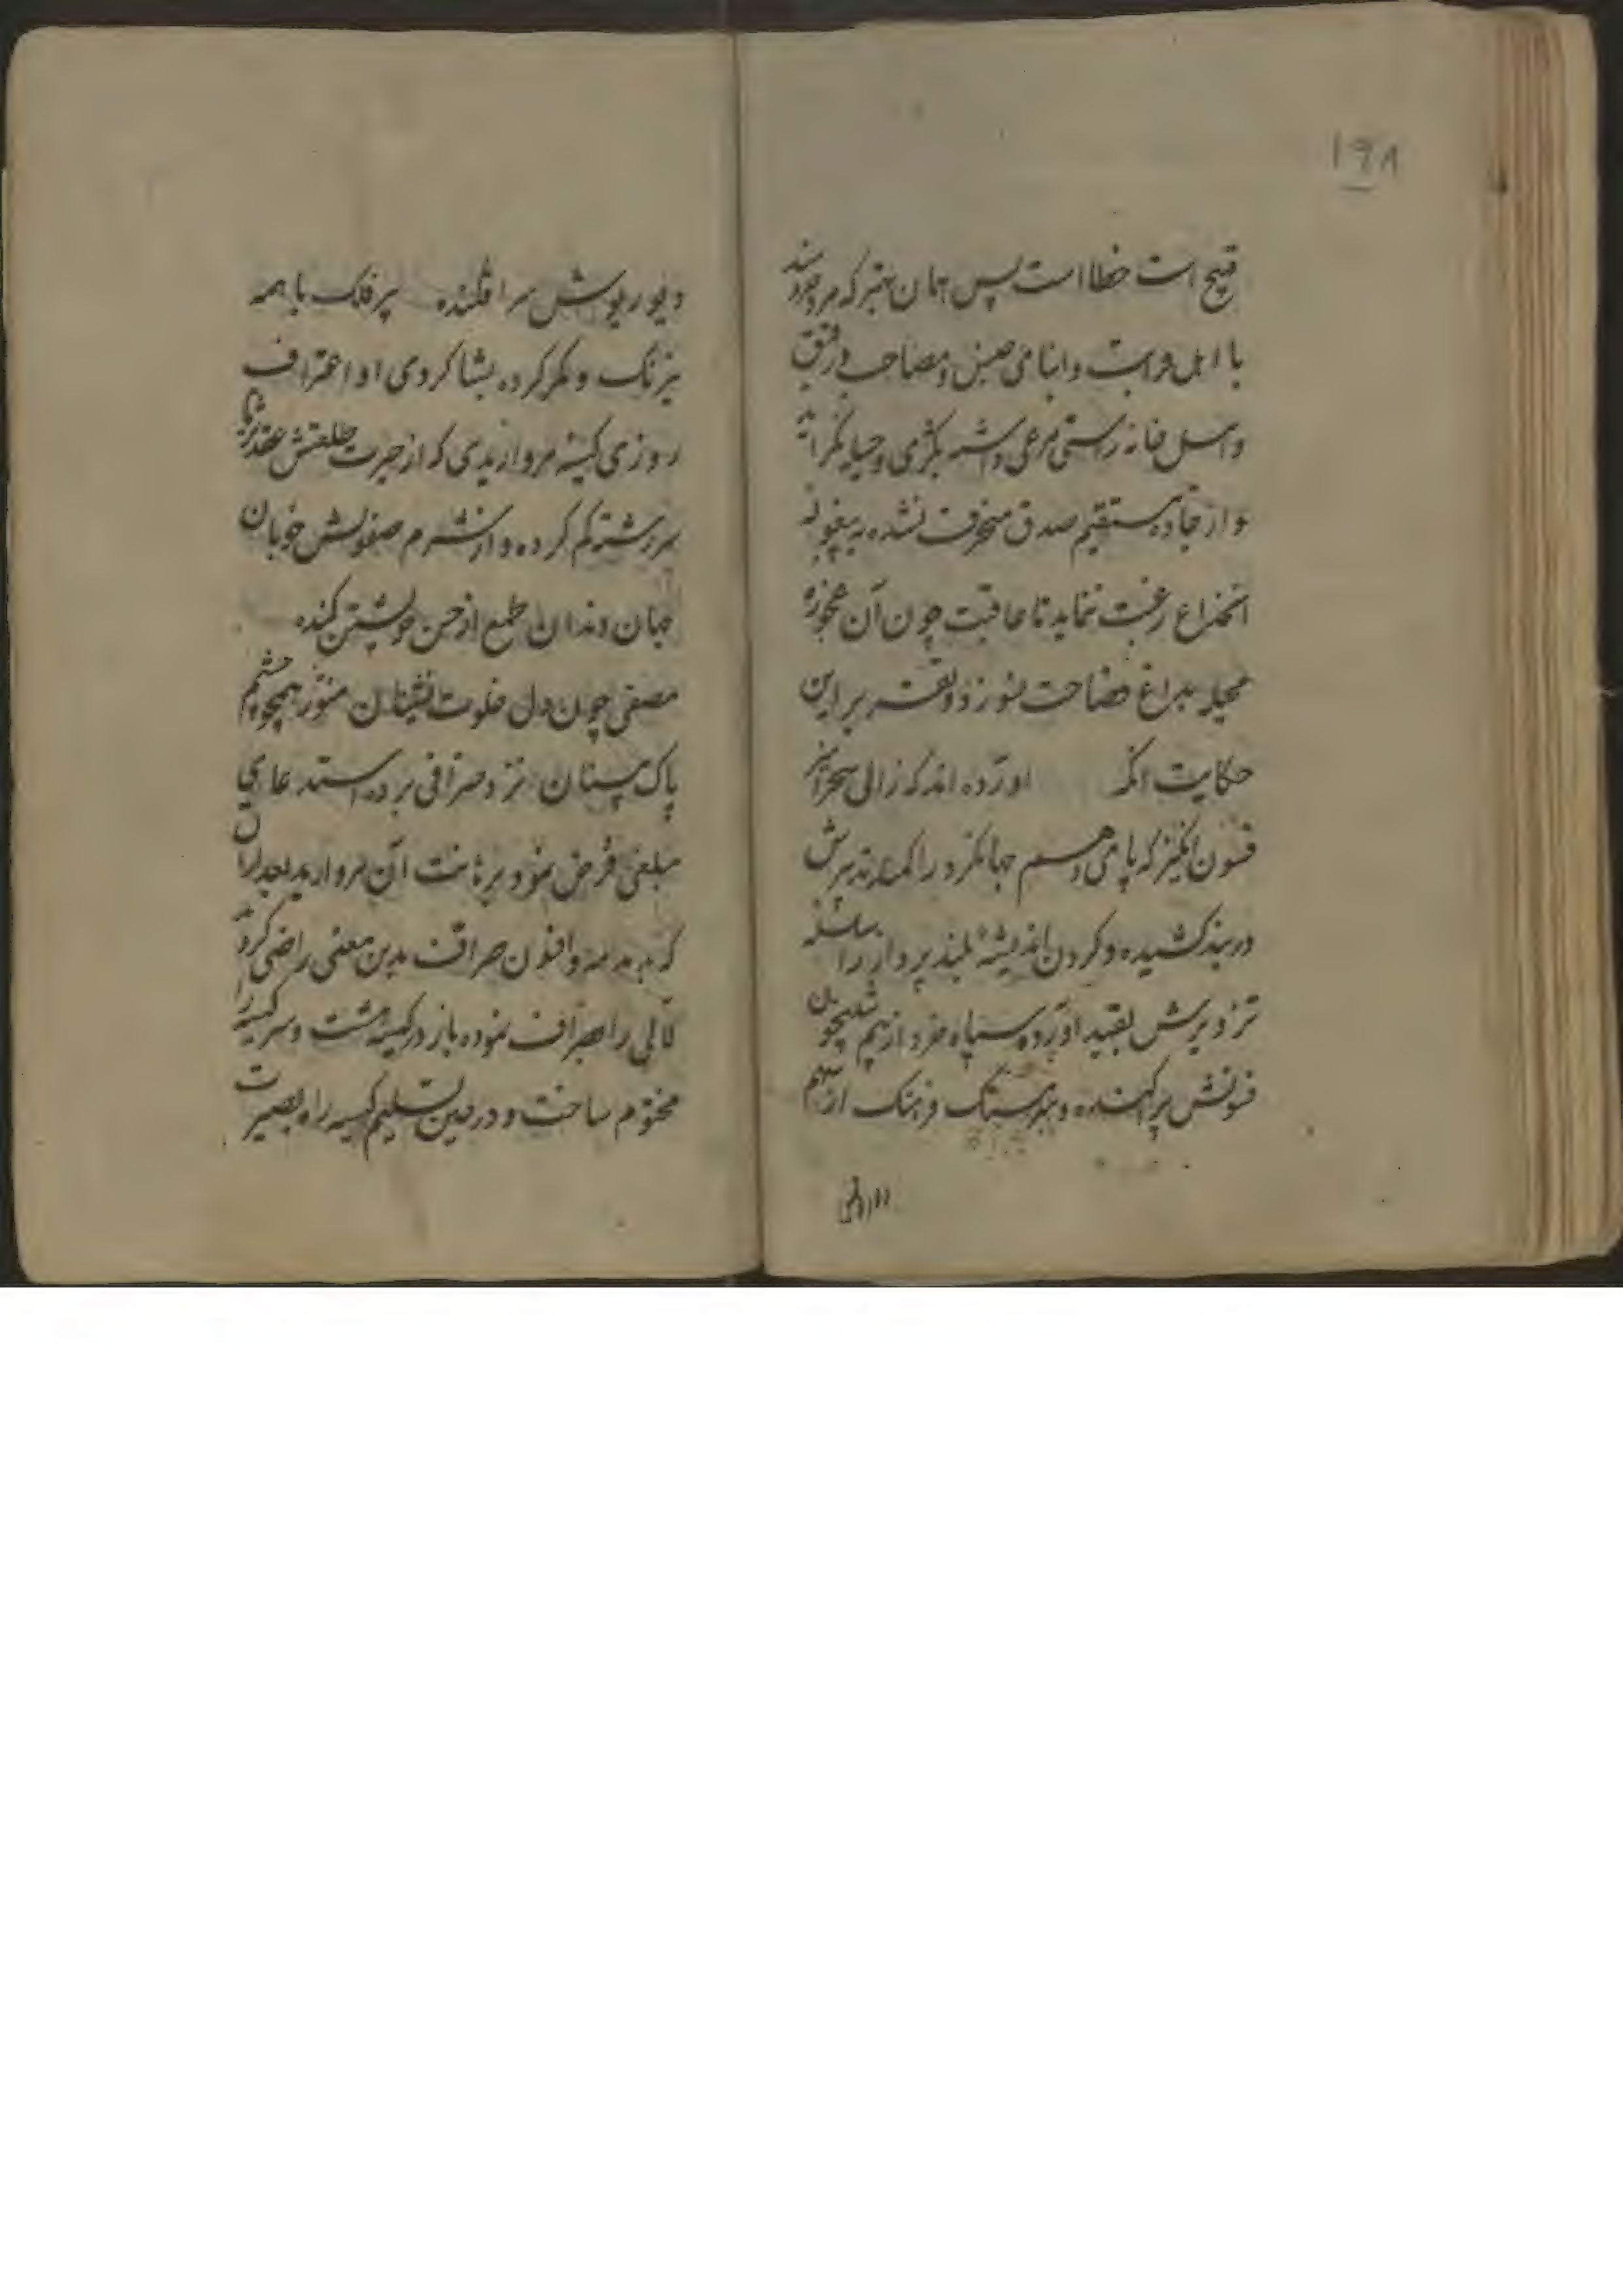 ۱۹۸
قبیح است خطا است پس همان بهتر که مرد خردمند
با اهل قرابت و ابنای جنس و مصاحب و رفیق
و اهل خانه راستی مرعی داشته بکژی و حیله نگراید
و از جاده مستقیم صدق منحرف نشده به بیغوله
انخداع رغبت ننماید تا عاقبت چون آن عجوزه
محیله بداغ فضاحت نسوزد و تقریر این
حکایت آنکه آورده اند که زالی سحرآمیز
فسون انگیز که پای وهم جهانگرد را کمند تدبیرش
در بند کشیده و گردن اندیشه بلند پرواز را سلسله
تزویرش بقید آورده سپاه خرد از بیم شبیخون
فسونش پراکنده و فرهنگ از سهم
دیو ریوش سرافکنده پیر فلک با همه
نیرنگ و مکر کرده بشاکردی او اعتراف
روزی کیسه مرواریدی که از حیرت طلعتش عقد ثریا
سررشته کم کرده و از شرم صفوتش خوبان
جهان دندان طمع از حسن خویشتن کنده
مصفی چون دل خلوت نشینان منور همچو چشم
پاک بینان نزد صرافی برده استدعای
مبلغی قرض نمود برهانت آن مروارید بعد از آن
که بدمدمه و افسون صراف بدین معنی راضی کردید
لآلی را صراف نموده باز در کیسه هشت و سر کیسه را
مختوم ساخت و در حین تسلیم کیسه را بصیرت